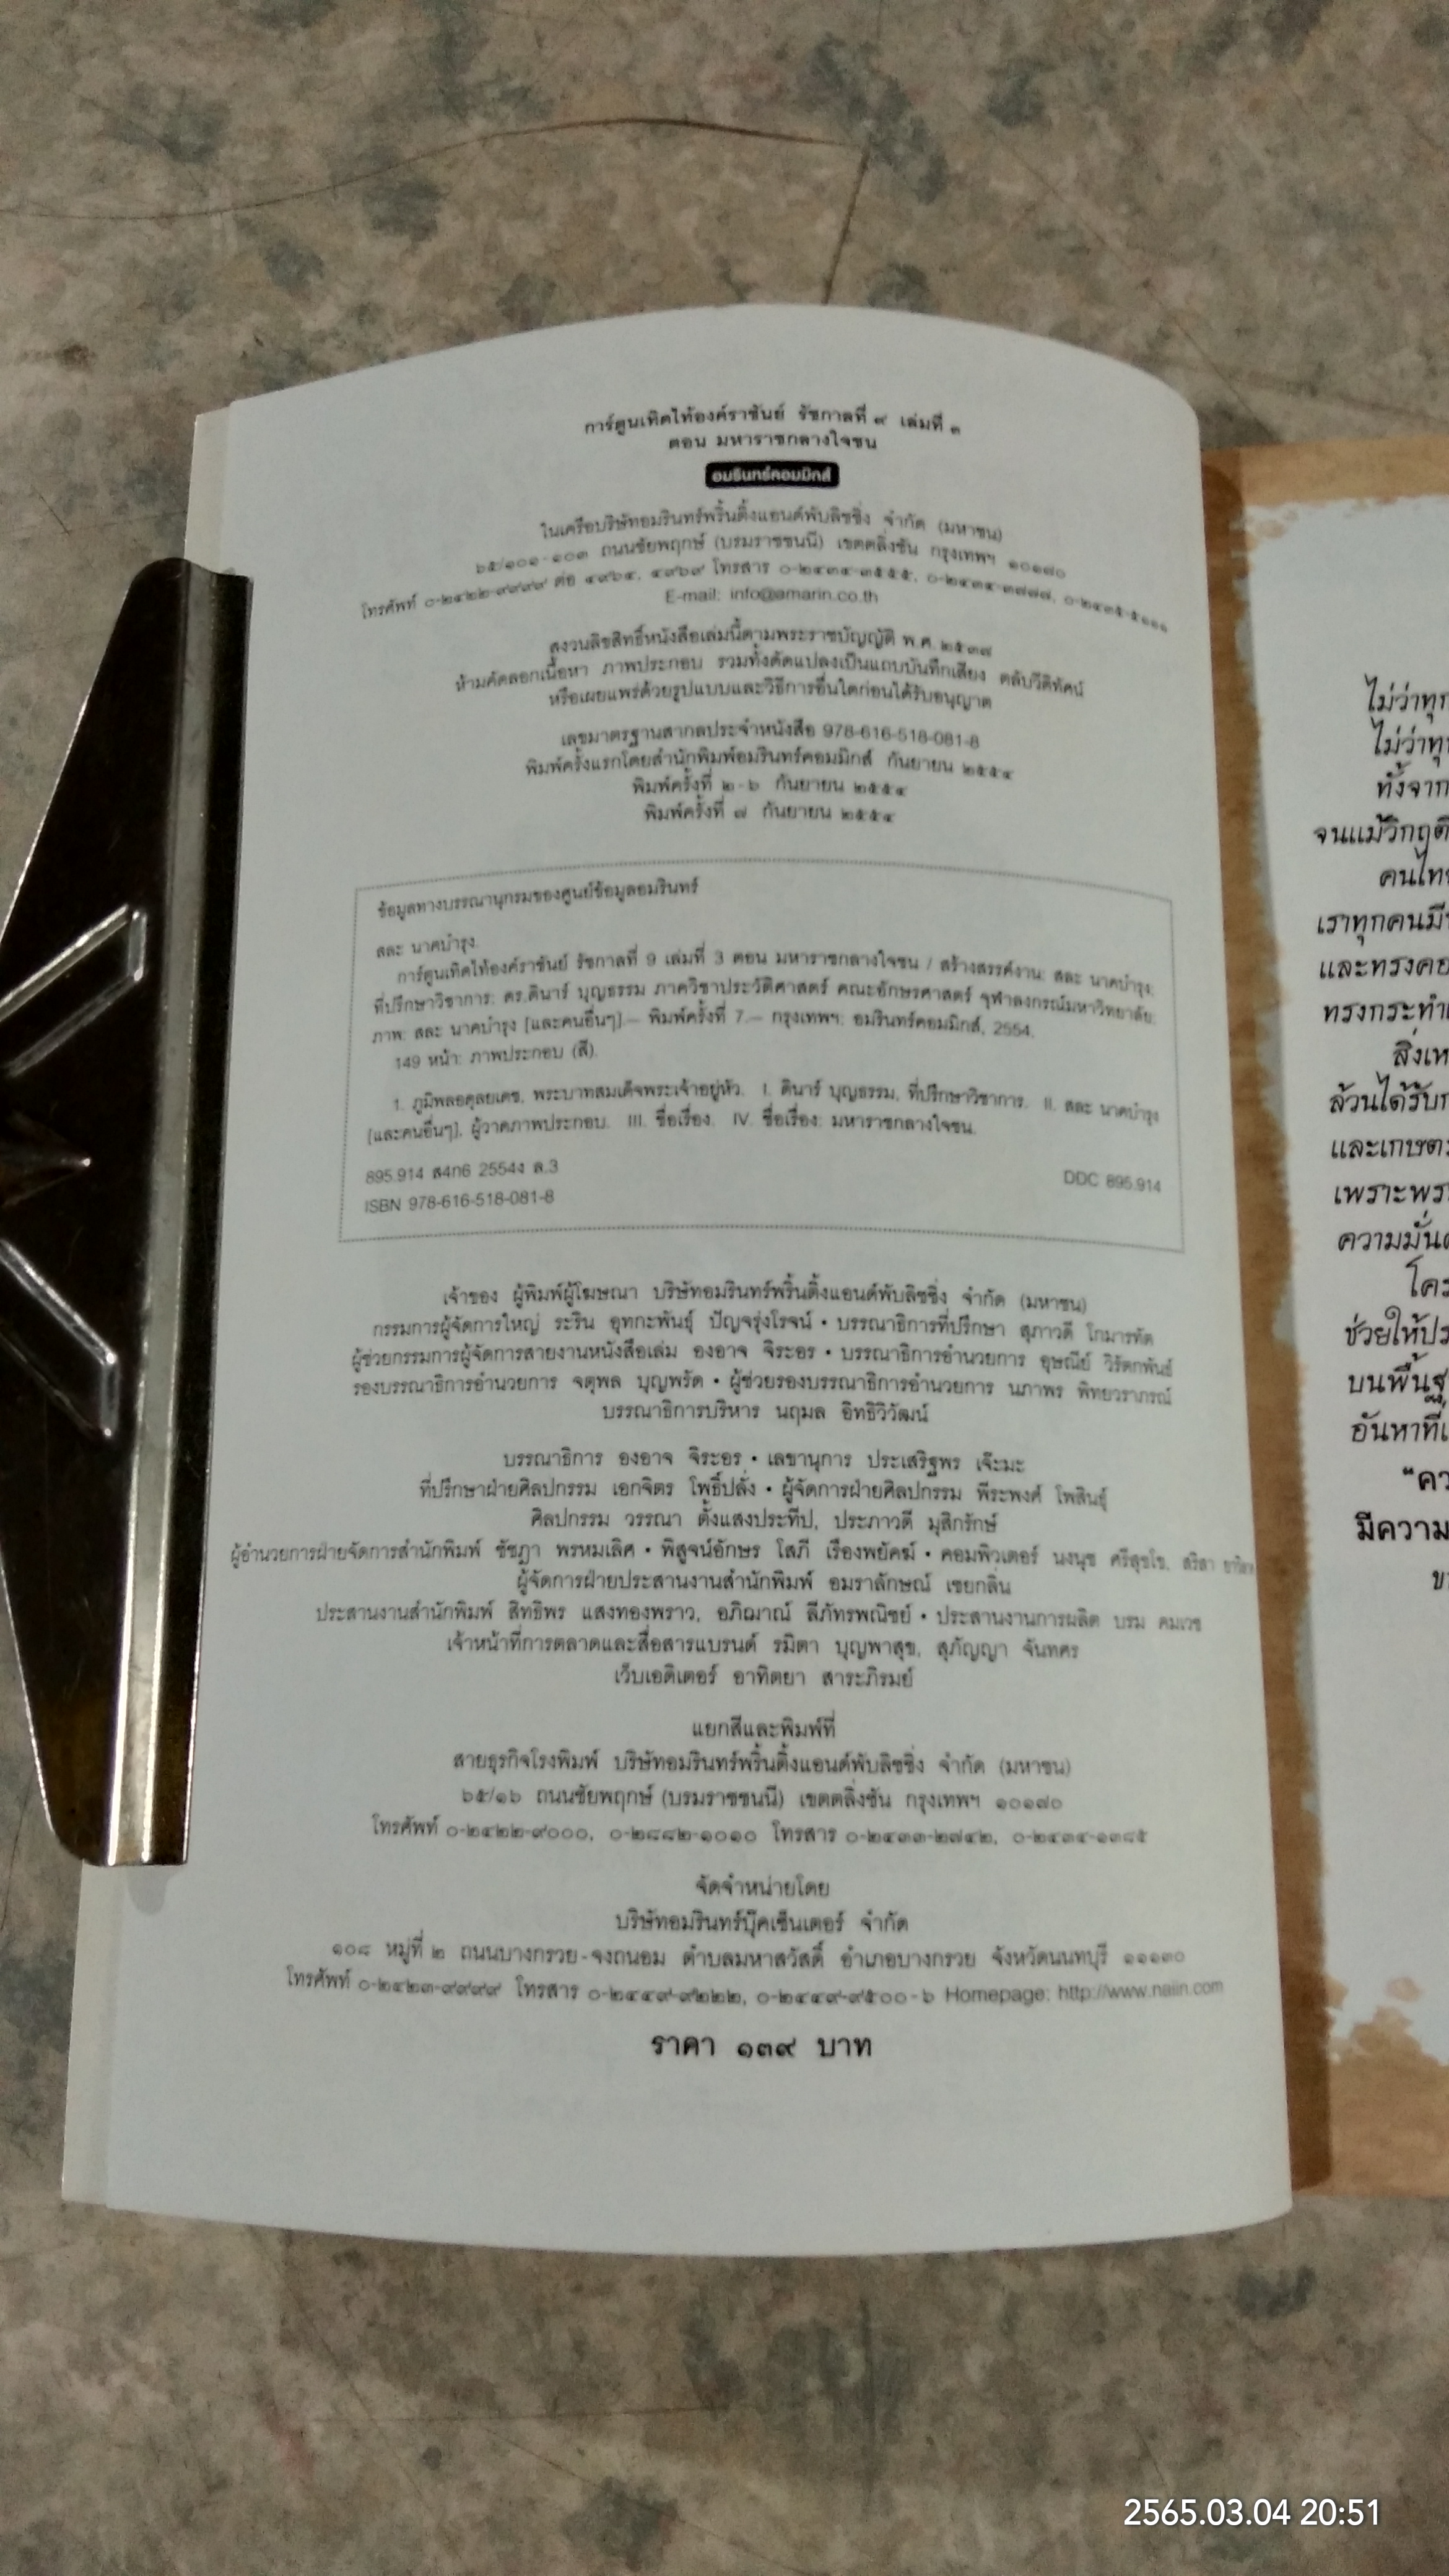 การ์ตูนเทิดไท้องค์ราชันย์ รัชกาลที่ ๙ เล่มที่ ๓
ตอน มหาราชกลางใจชน
อมรินทร์คอมมิกส์
ในเครือบริษัทอมรินทร์พริ้นติ้งแอนด์พับลิชชิ่ง จำกัด (มหาชน)
๖๕/๑๐๑-๑๐๓ ถนนชัยพฤกษ์ (บรมราชชนนี) เขตตลิ่งชัน กรุงเทพฯ ๑๐๑๗๐
โทรศัพท์ ๐-๒๔๒๒-๙๙๙๙ ต่อ ๔๙๖๔, ๔๙๖๙ โทรสาร ๐-๒๔๓๔-๓๕๕๕, ๐-๒๔๓๔-๓๗๗๗, ๐-๒๔๓๕-๕๑๑๑
E-mail: info@amarin.co.th
สงวนลิขสิทธิ์หนังสือเล่มนี้ตามพระราชบัญญัติ พ.ศ. ๒๕๓๗
ห้ามคัดลอกเนื้อหา ภาพประกอบ รวมทั้งดัดแปลงเป็นแถบบันทึกเสียง ตลับวีดิทัศน์
หรือเผยแพร่ด้วยรูปแบบและวิธีการอื่นใดก่อนได้รับอนุญาต
เลขมาตรฐานสากลประจำหนังสือ 978-616-518-081-8
พิมพ์ครั้งแรกโดยสำนักพิมพ์อมรินทร์คอมมิกส์ กันยายน ๒๕๕๔
พิมพ์ครั้งที่ ๒-๖ กันยายน ๒๕๕๔
พิมพ์ครั้งที่ ๗ กันยายน ๒๕๕๔
ข้อมูลทางบรรณานุกรมของศูนย์ข้อมูลอมรินทร์
สละ นาคบำรุง.
การ์ตูนเทิดไท้องค์ราชันย์ รัชกาลที่ 9 เล่มที่ 3 ตอน มหาราชกลางใจชน / สร้างสรรค์งาน: สละ นาคบำรุง;
ที่ปรึกษาวิชาการ: ดร.ดินาร์ บุญธรรม ภาควิชาประวัติศาสตร์ คณะอักษรศาสตร์ จุฬาลงกรณ์มหาวิทยาลัย;
ภาพ: สละ นาคบำรุง [และคนอื่นๆ].-- พิมพ์ครั้งที่ 7.-- กรุงเทพฯ: อมรินทร์คอมมิกส์, 2554.
149 หน้า: ภาพประกอบ (สี).
1. ภูมิพลอดุลยเดช, พระบาทสมเด็จพระเจ้าอยู่หัว. I. ดินาร์ บุญธรรม, ที่ปรึกษาวิชาการ. II. สละ นาคบำรุง
[และคนอื่นๆ], ผู้วาดภาพประกอบ. III. ชื่อเรื่อง. IV. ชื่อเรื่อง: มหาราชกลางใจชน.
895.914 ส4ก6 2554ง ล.3
DDC 895.914
ISBN 978-616-518-081-8
เจ้าของ ผู้พิมพ์ผู้โฆษณา บริษัทอมรินทร์พริ้นติ้งแอนด์พับลิชชิ่ง จำกัด (มหาชน)
กรรมการผู้จัดการใหญ่ ระริน อุทกะพันธุ์ ปัญจรุ่งโรจน์ • บรรณาธิการที่ปรึกษา สุภาวดี โกมารทัต
ผู้ช่วยกรรมการผู้จัดการสายงานหนังสือเล่ม องอาจ จิระอร • บรรณาธิการอำนวยการ อุษณีย์ วิรัตกพันธ์
รองบรรณาธิการอำนวยการ จตุพล บุญพรัด • ผู้ช่วยรองบรรณาธิการอำนวยการ นภาพร พิทยวราภรณ์
บรรณาธิการบริหาร นฤมล อิทธิวิวัฒน์
บรรณาธิการ องอาจ จิระอร • เลขานุการ ประเสริฐพร เจ๊ะมะ
ที่ปรึกษาฝ่ายศิลปกรรม เอกจิตร โพธิ์ปลั่ง • ผู้จัดการฝ่ายศิลปกรรม พีระพงศ์ โพสินธุ์
ศิลปกรรม วรรณา ตั้งแสงประทีป, ประภาวดี มุสิกรักษ์
ผู้อำนวยการฝ่ายจัดการสำนักพิมพ์ ชัชฎา พรหมเลิศ • พิสูจน์อักษร โสภี เรืองพยัคฆ์ • คอมพิวเตอร์ นงนุช ศรีสุขโข, สริสา
ผู้จัดการฝ่ายประสานงานสำนักพิมพ์ อมราลักษณ์ เชยกลิ่น
ประสานงานสำนักพิมพ์ สิทธิพร แสงทองพราว, อภิฌาณ์ ลีภัทรพณิชย์ • ประสานงานการผลิต บรม คมเวช
เจ้าหน้าที่การตลาดและสื่อสารแบรนด์ รมิตา บุญพาสุข, สุภัญญา จันทศร
เว็บเอดิเตอร์ อาทิตยา สาระภิรมย์
แยกสีและพิมพ์ที่
สายธุรกิจโรงพิมพ์ บริษัทอมรินทร์พริ้นติ้งแอนด์พับลิชชิ่ง จำกัด (มหาชน)
๖๕/๑๖ ถนนชัยพฤกษ์ (บรมราชชนนี) เขตตลิ่งชัน กรุงเทพฯ ๑๐๑๗๐
โทรศัพท์ ๐-๒๔๒๒-๙๐๐๐, ๐-๒๘๘๒-๑๐๑๐ โทรสาร ๐-๒๔๓๓-๒๗๔๒, ๐-๒๔๓๔-๑๓๘๕
จัดจำหน่ายโดย
บริษัทอมรินทร์บุ๊คเซ็นเตอร์ จำกัด
๑๐๘ หมู่ที่ ๒ ถนนบางกรวย-จงถนอม ตำบลมหาสวัสดิ์ อำเภอบางกรวย จังหวัดนนทบุรี ๑๑๑๓๐
โทรศัพท์ ๐-๒๔๒๓-๙๙๙๙ โทรสาร ๐-๒๔๔๙-๙๒๒๒, ๐-๒๔๔๙-๙๕๐๐-๖ Homepage: http://www.naiin.com
ราคา ๑๓๙ บาท
ไม่ว่าทุก
ไม่ว่าทุ
ทั้งจาก
จนแม้วิกฤติ
คนไทย
เราทุกคนมี
และทรงคอ
ทรงกระทำ
สิ่งเห
ล้วนได้รับก
และเกษต
เพราะพร
ความมั่นค
โคร
ช่วยให้ปร
บนพื้นฐ
อันหาที่
"คว
มีความ
ข
2565.03.04 20:51